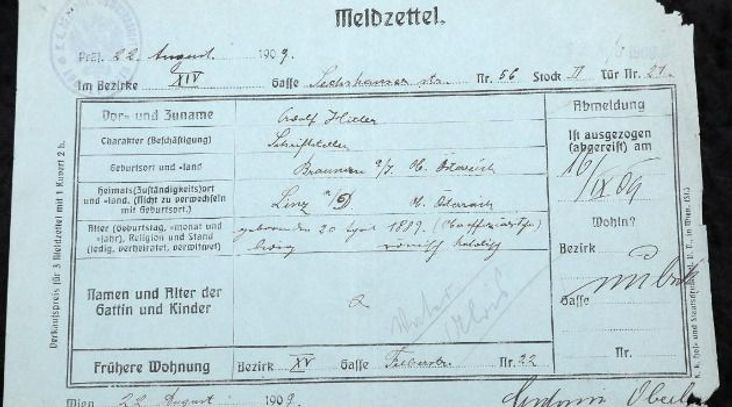 Meldzettel.
Präs. 22 August 1909.
Im Bezirke XIV Gasse Sechshauser str. Nr. 56 Stock II Tür Nr. 21.
Vor- und Zuname
Adolf Hitler
Charakter (Beschäftigung)
Schriftsteller
Geburtsort und -land
Braunau a/I. Ob. Österreich
Heimats(Zuständigkeits)ort und -land. (Nicht zu verwechseln mit Geburtsort.)
Linz a/D O. Österreich
Alter (Geburtstag, -monat und -jahr), Religion und Stand (ledig, verheiratet, verwitwet)
geboren den 20 April 1889.
ledig römisch katolisch
Namen und Alter der Gattin und Kinder
Frühere Wohnung
Bezirk XV Gasse Felberstr. Nr. 22
Wien 22 August 1909
Abmeldung
Ist ausgezogen (abgereist) am
16/IX 09
Wohin?
Bezirk
Gasse
Nr.
Verkaufspreis für 3 Meldzettel mit 1 Kuvert 2 h.
K. k. Hof- und Staatsdruckerei